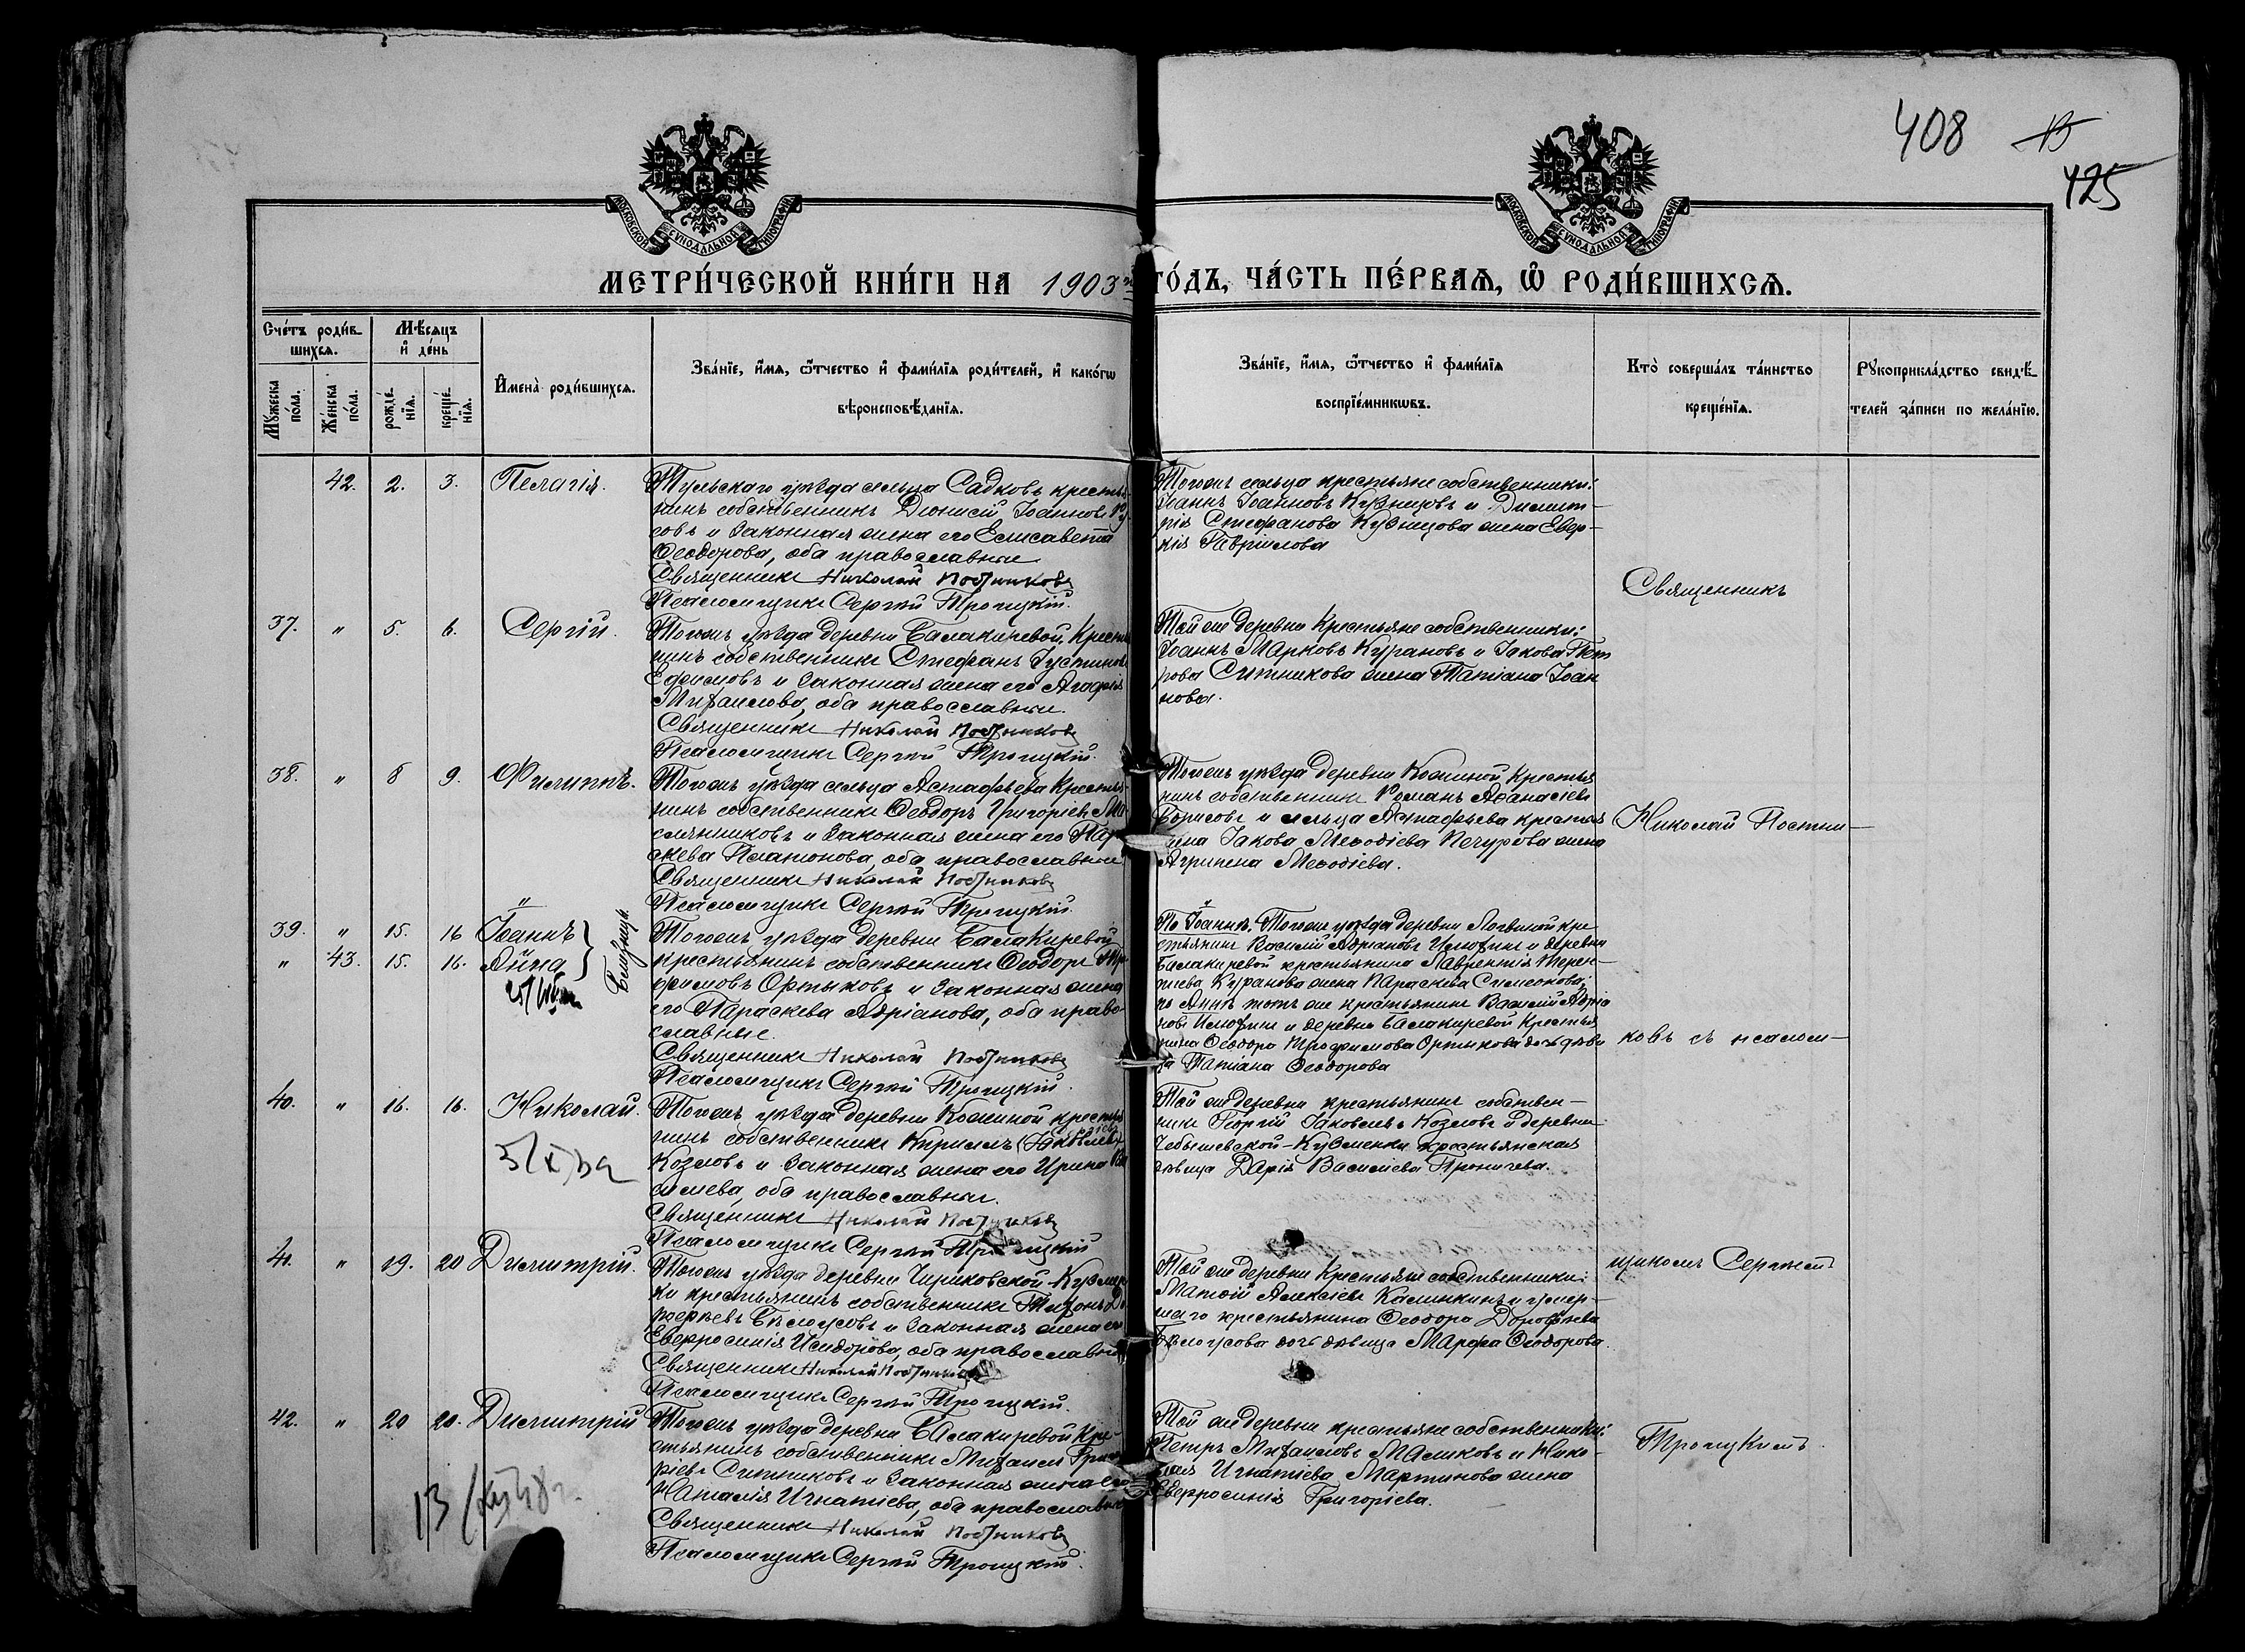 408 13
425
МОСКОВСКОЙ СѴНОДАЛЬНОЙ ТИПОГРАФІИ
МОСКОВСКОЙ СѴНОДАЛЬНОЙ ТИПОГРАФІИ
МЕТРИ́ЧЕСКОЙ КНИ́ГИ НА 1903 ГО́ДЪ, ЧА́СТЬ ПЕ́РВАѦ, Ѡ҆ РОДИ́ВШИХСѦ.
Сче́тъ роди́в-
шихсѧ.
Мѣ́сѧцъ
и҆ де́нь
Мꙋ́жеска
по́ла.
Же́нска
по́ла.
рожде́-
нїѧ.
креще́-
нїѧ.
И҆мена̀ роди́вшихсѧ.
Зва́нїе, и҆́мѧ, ѻ҆́тчество и҆ фами́лїѧ роди́телей, и҆ како́гѡ
вѣроисповѣ́данїѧ.
Зва́нїе, и҆́мѧ, ѻ҆́тчество и҆ фами́лїѧ
воспрїе́мникѡвъ.
Кто̀ соверша́лъ та́инство
креще́нїѧ.
Рꙋкоприкла́дство свидѣ́-
телей за́писи по жела́нїю.
42. 2. 3. Пелагія.
Тульскаго уѣзда сельца Садковъ крестья-
нинъ собственникъ Діонисій Іоанновъ
совъ и законная жена его Елисавета
Ѳеодорова, оба православные
Священникъ Николай Постниковъ
Псаломщикъ Сергѣй Троицкій.
Тогожъ сельца крестьяне собственники:
Іоаннъ Іоанновъ Кузнецовъ и Димит-
рія Стефанова Кузнецова жена Евдо-
кія Гавріилова
37. " 5. 6. Сергій.
Тогожъ уѣзда деревни Балакиревой, Крестья
нинъ собственникъ Стефанъ Іустиновъ
Ефимовъ и законная жена его Агафія
Михаилова, оба православные.
Священникъ Николай Постниковъ
Псаломщикъ Сергѣй Троицкій.
Той же деревни Крестьяне собственники:
Іоаннъ Марковъ Курановъ и Іакова Пет
рова Ситникова жена Татіана Іоан
нова.
38. " 8 9. Филиппъ.
Тогожъ уѣзда сельца Астафьева Крестья-
нинъ собственникъ Ѳеодоръ Григорьевъ Ма
слянниковъ и законная жена его Пар
скева Платонова, оба православные
Священникъ Николай Постниковъ
Псаломщикъ Сергѣй Троицкій.
Тогожъ уѣзда деревни Кожиной Крестья
нинъ собственникъ Романъ Аѳанасіевъ
Борисовъ и сельца Астафьева крестья
нина Іакова Меѳодіева Печурова жена
Агрипена Меѳодіева.
39. " 15. 16 Іоаннъ
" 43. 15. 16. Анна
Близнецы
Тогожъ уѣзда деревни Балакиревой
крестьянинъ собственникъ Ѳеодоръ Тро
фимовъ Ортыковъ и законная жена
его Параскева Адріанова, оба право-
славные.
Священникъ Николай Постниковъ
Псаломщикъ Сергѣй Троицкій.
По Іоаннѣ. Тогоже уѣзда деревни Логвиной кре
стьянинъ Василій Адріановъ Илюхинъ и деревни
Балакиревой крестьянина Лаврентія Терен-
тіева Куранова жена Параскева Симеонова;
по Аннѣ тотъ же крестьянинъ Василій Адріа
новъ Илюхинъ и деревни Балакиревой Крестья
нина Ѳеодора Трофимова Ортыкова дочь дѣви
ца Татіана Ѳеодорова
40. " 16. 16. Николай.
Тогожъ уѣзда деревни Кожиной крестья
нинъ собственникъ Кириллъ (Іаковлевъ)
Козловъ и законная жена его Ирина Ва
силиева, оба православные.
Священникъ Николай Постниковъ
Псаломщикъ Сергѣй Троицкій
Той же деревни крестьянинъ собствен-
никъ Георгій Іаковлевъ Козловъ и деревни
Чебышевской-Кузменки крестьянская
дѣвица Дарія Василиева Проничева.
41. " 19. 20 Димитрій.
Тогожъ уѣзда деревни Чириковской-Кузмен
ки крестьянинъ собственникъ Тихонъ До
рофѣевъ Бѣлоусовъ и законная жена его
Евфросинія Исидорова, оба православные
Священникъ Николай Постниковъ
Псаломщикъ Сергѣй Троицкій.
Той же деревни Крестьяне собственники:
Матѳій Алексіевъ Калинкинъ и умер-
шаго крестьянина Ѳеодора Дорофѣева
Бѣлоусова дочь дѣвица Марфа Ѳеодорова.
42. " 20 20. Димитрій
Тогожъ уѣзда деревни Балакиревой Кре-
стьянинъ собственникъ Михаилъ Григо
ріевъ Ситниковъ и законная жена его
Наталія Игнатіева, оба православные
Священникъ Николай Постниковъ
Псаломщикъ Сергѣй Троицкій.
Той же деревни крестьяне собственники:
Петръ Михаиловъ Маликовъ и Нико-
лая Игнатіева Мартинова жена
Евфросинія Григоріева.
Священникъ
Николай Постни-
ковъ съ псалом-
щикомъ Сергѣемъ
Троицкимъ.